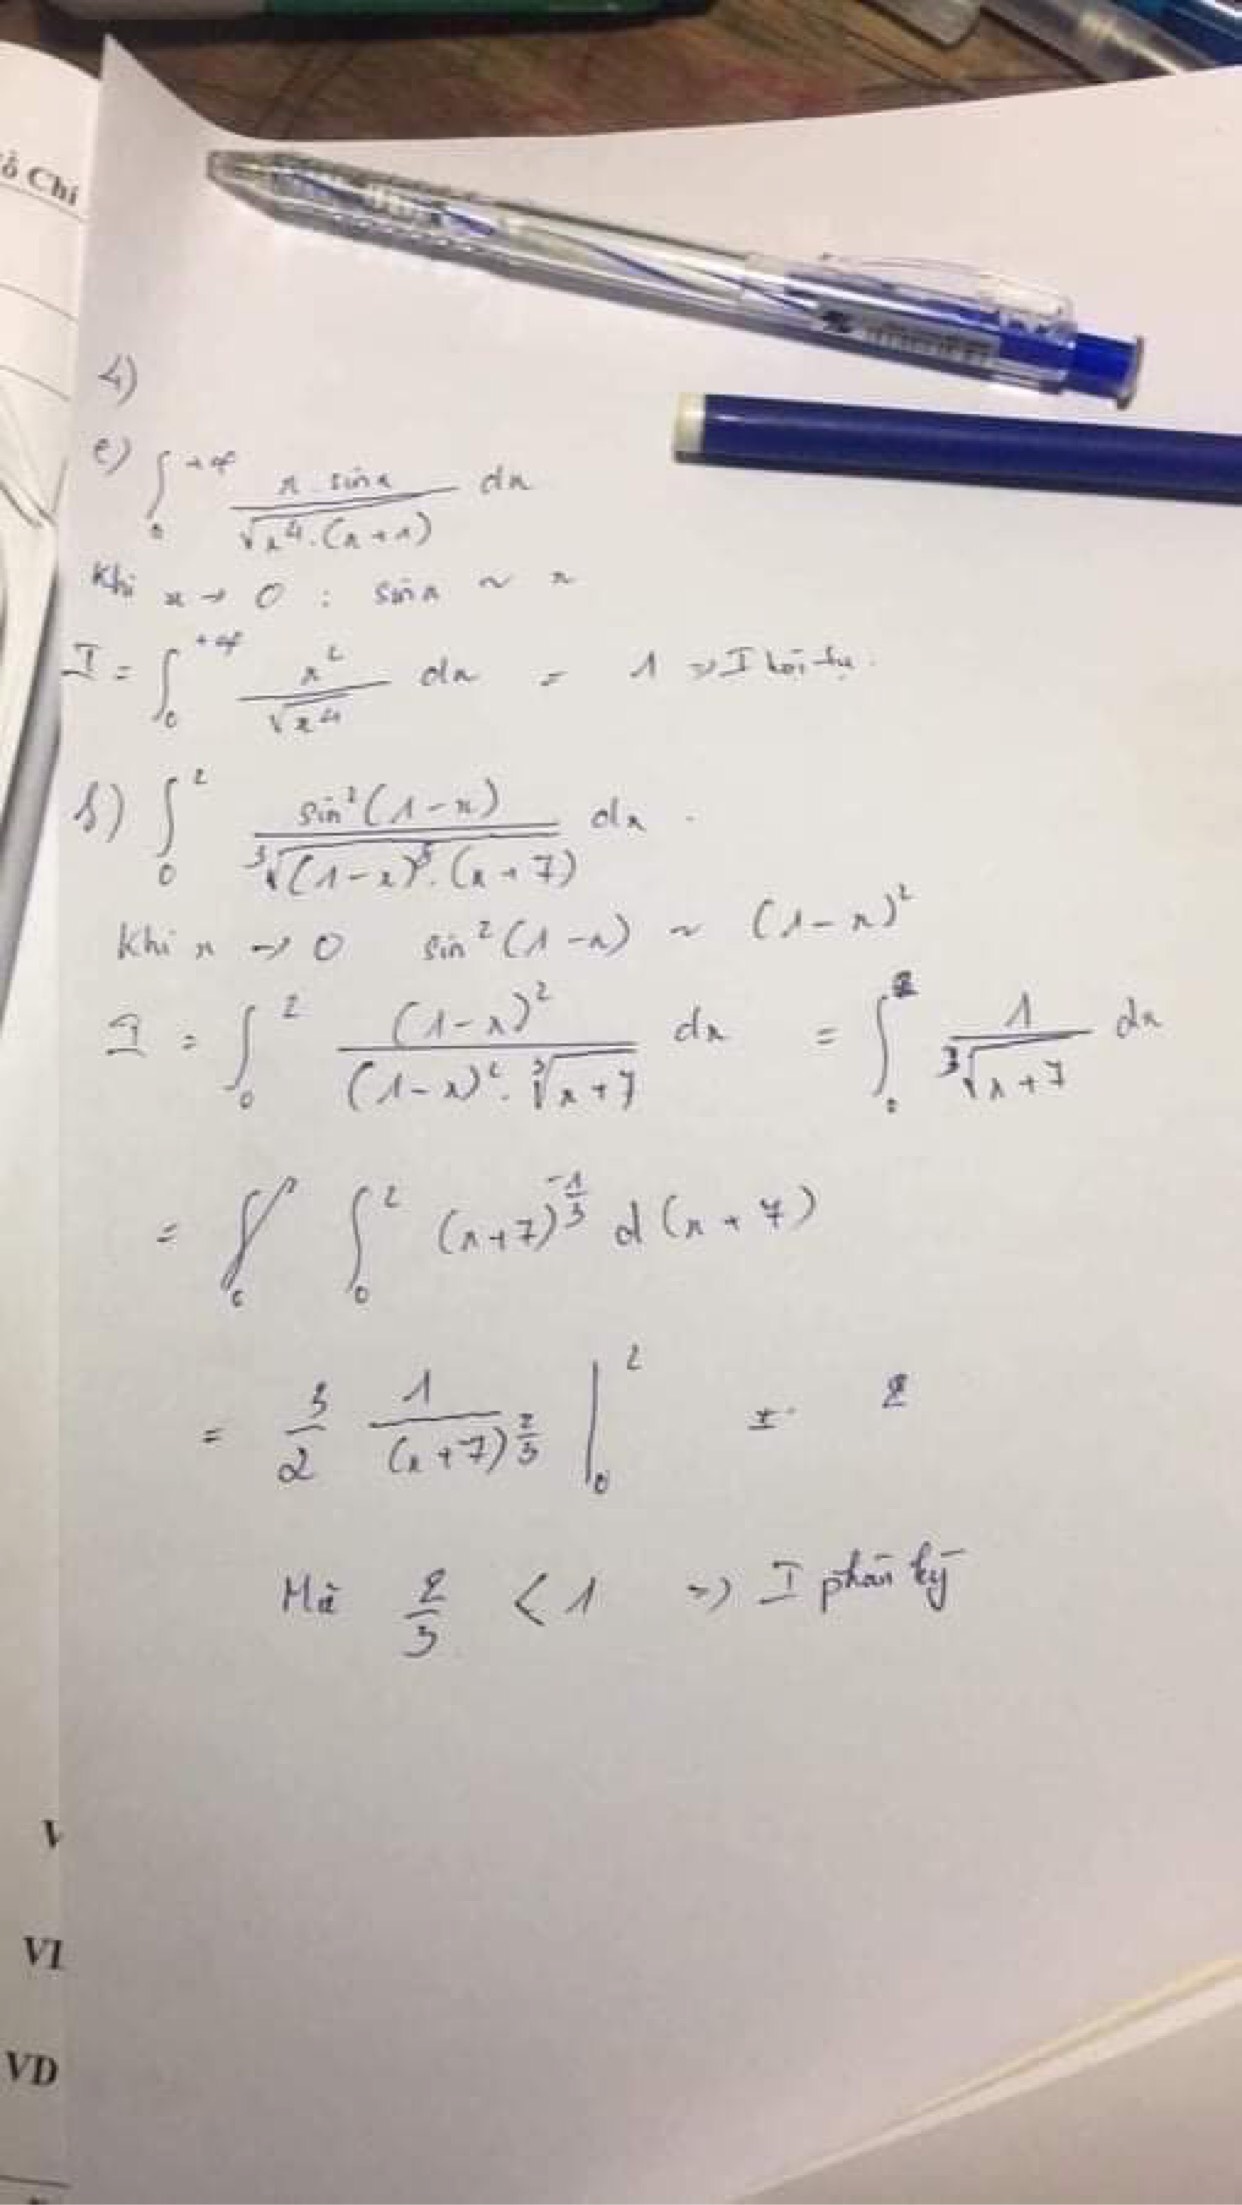 ồ Chí
4)
e) ∫₀^{+∞} x sinx / √(x⁴.(x+1)) dx
Khi x → 0 : sinx ~ x
I = ∫₀^{+∞} x² / √x⁴ dx = 1 => I hội tụ.
∫₀² sin²(1-x) / ∛((1-x)⁵.(x+7)) dx .
Khi x → 0 sin²(1-x) ~ (1-x)²
I = ∫₀² (1-x)² / ((1-x)².∛(x+7)) dx = ∫₀² 1 / ∛(x+7) dx
= ∫₀² (x+7)^{-1/3} d(x+7)
= 3/2 1/(x+7)^{2/3} |₀²
Mà 2/3 < 1 => I phân kỳ
V
VI
VD